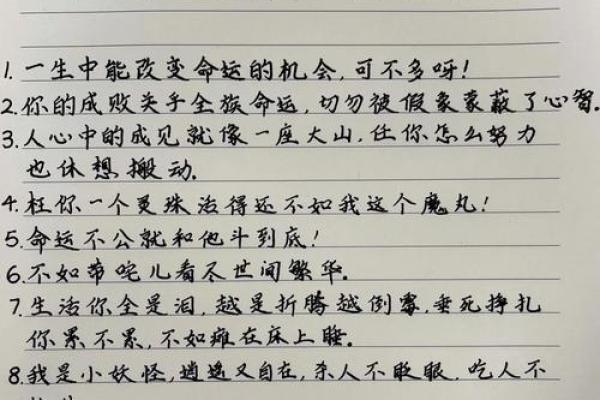 1. 一生中能改变命运的机会,可不多呀!
2. 你的成败关乎全族命运,切勿被假象蒙蔽了心智.
3. 人心中的成见就像一座大山,任你怎么努力
也休想搬动.
4. 枉你一个灵珠活得还不如我这个魔丸!
5. 命运不公就和他斗到底!
6. 不如带咤儿看尽世间繁华.
7. 生活你全是泪,越是折腾越倒霉,垂死挣扎
你累不累,不如瘫在床上睡.
8. 我是小妖怪,逍遥又自在,杀人不眨眼.吃人不